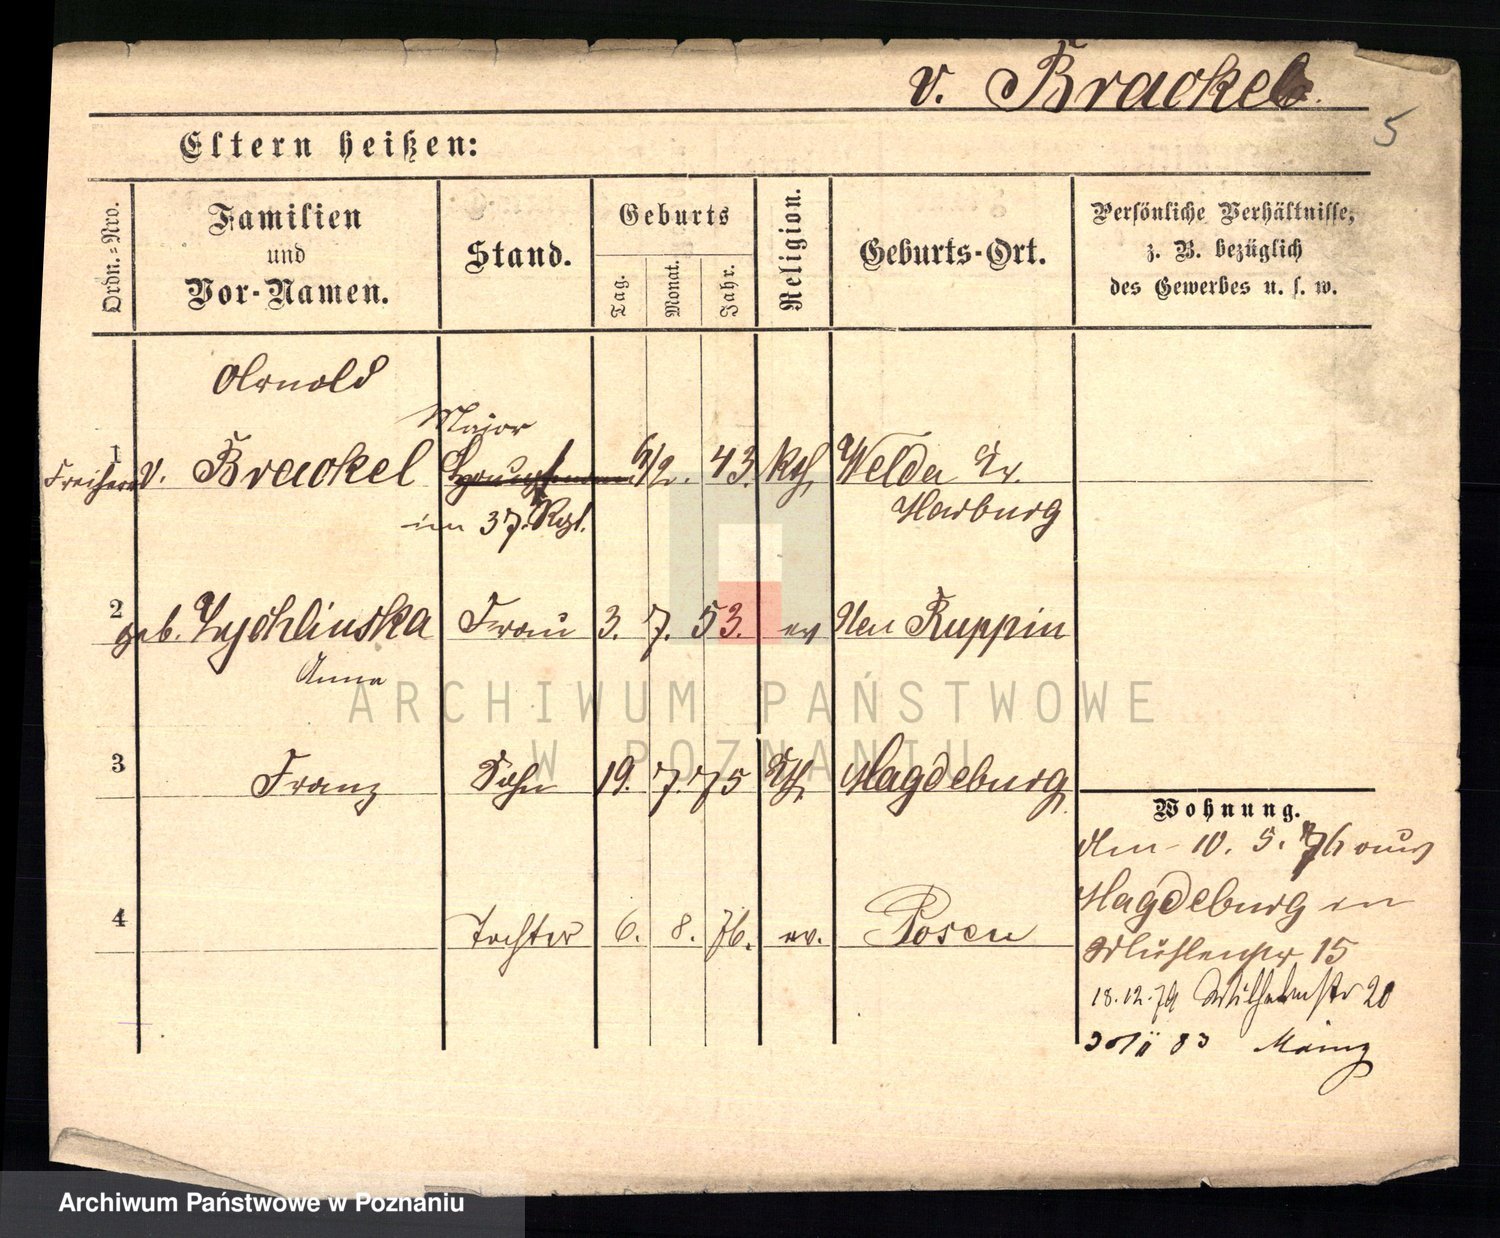 v. Brackel.
5
Eltern heißen:
Ordn.-Nro.
Familien
und
Vor-Namen.
Stand.
Geburts
Tag.
Monat.
Jahr.
Religion.
Geburts-Ort.
Persönliche Verhältnisse,
z. B. bezüglich
des Gewerbes u. s. w.
Arnold
Major
1 Freiherr v. Brackel Hauptmann 2. 43. kth. Welda Kr.
im 37. Rgt. Warburg
2 geb. Zychlinska Frau 3. 7. 53. ev Neu Ruppin
Anna
3 Franz Sohn 19. 7. 75 kth. Magdeburg
Wohnung.
den 10. 5. 76 aus
Magdeburg in
4 Tochter 6. 8. 76. ev. Posen
Mühlenstr 15
18.12.79 Wilhelmstr 20
83 Mainz
ARCHIWUM PAŃSTWOWE
W POZNANIU
Archiwum Państwowe w Poznaniu